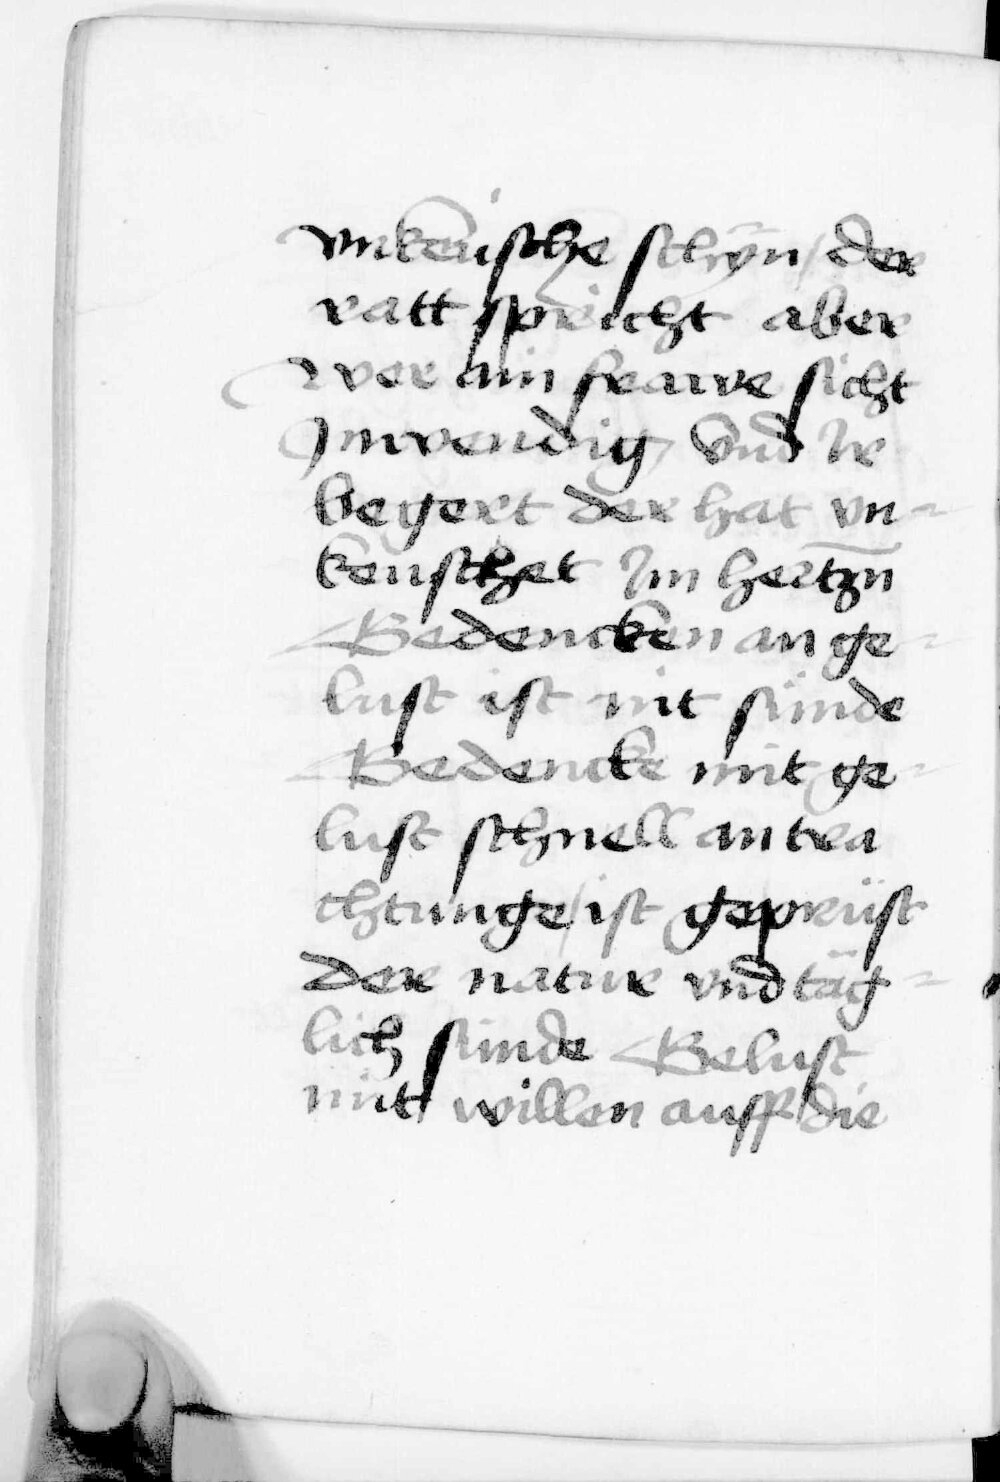 vnkeüsche schÿn / der
ratt spricht aber
wer ain frawe sicht
Jnwendig vnd Jr
begert der hat vn=
keüschet Jm hertzn̄
Bedencken an ge=
lust ist nit sünde
Bedencke mit ge=
lust schnell an tra
chtunge / ist geprüst
der natur vnd täg=
lich sünde Belust
mit willen auff die